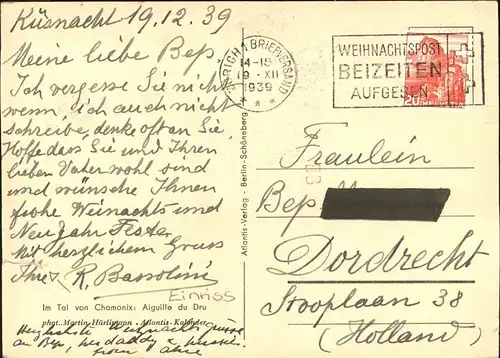 Küsnacht 19.12.39
Meine liebe Bep
Ich vergesse Sie nicht
wenn, ich auch nicht
schreibe, denke oft an Sie,
Hoffe dass Sie und Ihren
lieben Vater wohl sind
und wünsche Ihnen
frohe Weinachts und
Neujahr Feste,
Mit herzlichem Gruss
Ihre R. Bassolini
Einriss
Im Tal von Chamonix: Aiguille du Dru
phot. Martin Hürlimann · Atlantis-Kalender
Herzlichste Weihnachts
an Bep,
Atlantis-Verlag · Berlin-Schöneberg
ZÜRICH 1 BRIEFVERSAND
14-15
19 · XII
1939
WEIHNACHTSPOST
BEIZEITEN
AUFGEBEN
20 HELVETIA
Fraulein
Bep
Dordrecht
Stooplaan 38
(Holland)